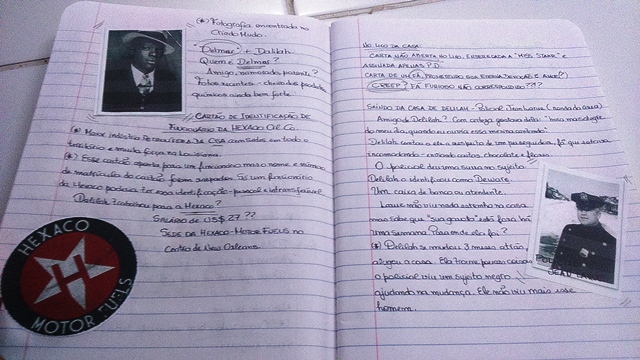 (*) Fotografia encontrada no
Criado Mudo.
"Delmar" + Dalilah
Quem é Delmar?
Amigo, namorado, parente?
Fotos recentes - cheiro dos produtos
químicos ainda bem forte.
CARTÃO DE IDENTIFICAÇÃO DE
FUNCIONÁRIO DA HEXACO OIL CO.
(*) Maior indústria PETROLÍFERA DA
com sedes em todo o
território e muita força na Louisiana.
(*) Esse cartão aponta para um funcionário mas o nome e número
de matrícula do cartão foram raspados. Só um funcionário
da Hexaco poderia ter essa identificação - pessoal e intransferível
Delilah trabalhou para a Hexaco?
SALÁRIO DE US$ 27??
SEDE DA HEXACO-MOTOR FUELS NO
Centro de New Orleans
HEXACO
H
MOTOR FUELS
NO LIXO DA CASA:
CARTA NÃO ABERTA NO LIXO, ENDEREÇADA A "MISS STARR" E
ASSINADA APENAS P.D.
CARTA DE UM FÃ, PROMETENDO SUA ETERNA DEVOÇÃO E AMOR(?)
CREEP? FÃ FURIOSO NÃO CORRESPONDIDO???
SAINDO DA CASA DE DELILAH - Policial
(ronda da área)
Amigo de Delilah? Com certeza gostava dela: "
do meu dia quando eu ouvia essa menina cantando"
Delilah contou a ele a respeito de um perseguidor, fã que estava
incomodando - enviando cartas, chocolate e flores.
O policial deu uma surra no sujeito
Delilah o identificou como Dewate.
Um caixa de banco ou atendente.
mas sabe que "sua garota" está fora há
uma semana. Para onde ela foi?
(*) Delilah se mudou 3 meses atrás,
alugou a casa. Ela trouxe poucas coisas
o policial viu um sujeito negro
ajudando na mudança. Ele não viu mais esse
homem.